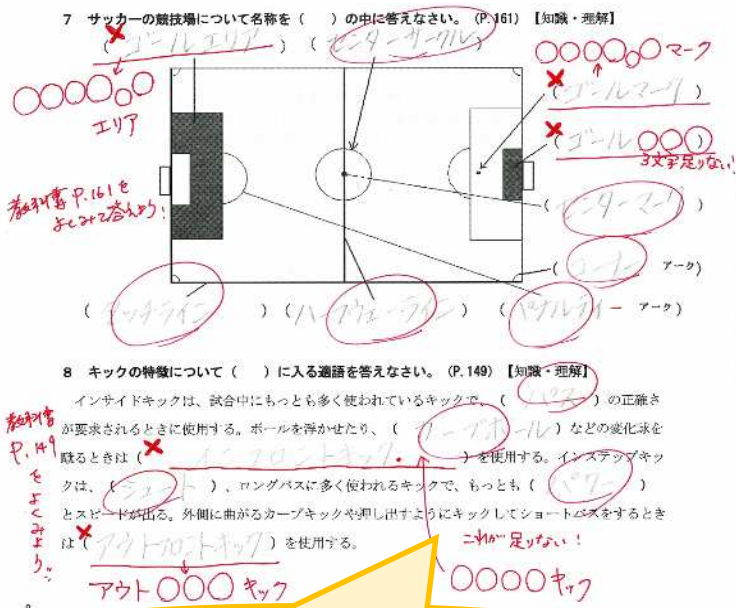 7 サッカーの競技場について名称を( )の中に答えなさい。(P.161)【知識・理解】
(ゴールエリア) (センターサークル)
○○○○○○マーク
○○○○○○エリア
(ゴールマーク)
(ゴール○○○)
3文字足りない!
教科書P.161をよくみて答えよう!
(センターマーク)
(コーナー アーク)
(タッチライン) (ハーフウェーライン) (ペナルティー アーク)
8 キックの特徴について( )に入る適語を答えなさい。(P.149)【知識・理解】
インサイドキックは、試合中にもっとも多く使われているキックで、(パス)の正確さ
が要求されるときに使用する。ボールを浮かせたり、(カーブボール)などの変化球を
蹴るときは(インフロントキック)を使用する。インステップキッ
クは、(シュート)、ロングパスに多く使われるキックで、もっとも(パワー)
とスピードが出る。外側に曲がるカーブキックや押し出すようにキックしてショートパスをするとき
は(アウトフロントキック)を使用する。
教科書P.149をよくみよう!!
これが足りない!
アウト○○○キック
○○○○キック